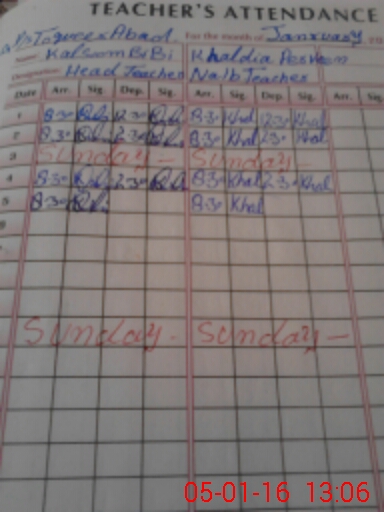 TEACHER'S ATTENDANCE
For the month of January
Name Kalsoom BiBi Khaldia Parveen
Designation Head Teacher Naib Teacher
Date Arr. Sig. Dep. Sig. Arr. Sig. Dep. Sig. Arr. Sig.
1 8:30 12:30 8:30 Khal 12:30 Khal
2 8:30 2:30 8:30 Khal 2:30 Khal
3 Sunday - Sunday -
4 8:30 2:30 8:30 Khal 2:30 Khal
5 8:30 8:30 Khal
Sunday - Sunday -
05-01-16 13:06